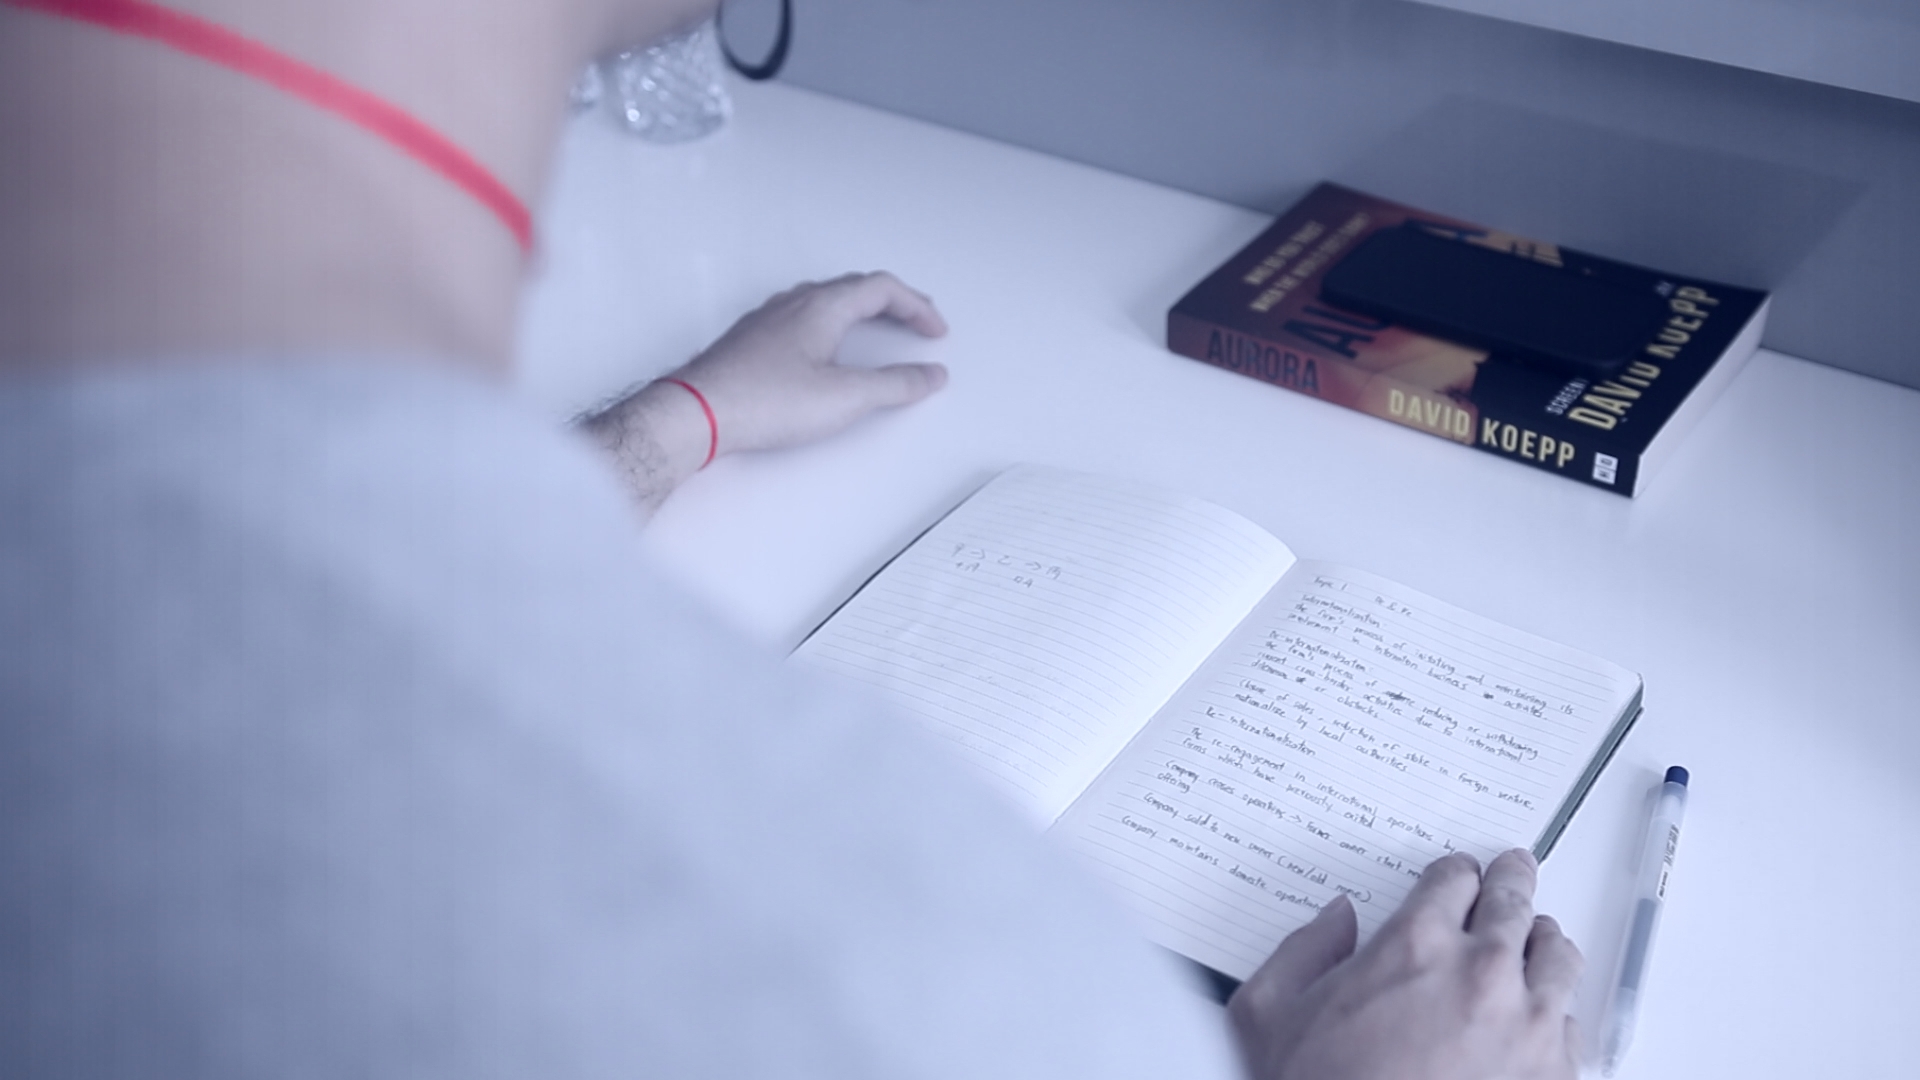 AURORA
DAVID KOEPP
DAVID KOEPP
Topic 1 De & Re
Internationalization
the firm's process of initiating and maintaining its
involvement in internation business activities.
De-internationalization
the firm's process of reducing or withdrawing
current cross-border activities due to international
dilemma or obstacles.
Closure of sales, reduction of stake in foreign venture,
nationalize by local authorities
Re-internationalisation
The re-engagement in international operations by
firms which have previously exited
Company ceases operating -> former owner start
offering
Company sold to new owner (new/old name)
Company maintains domestic operations